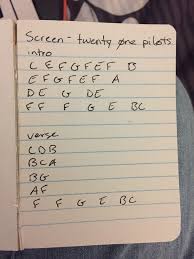 Screen - twenty øne pilots
intro
C E F G F E F B
E F G F E F A
D E G D E
F F F G E B C
verse
C D B
B C A
B G
A F
F F G E B C